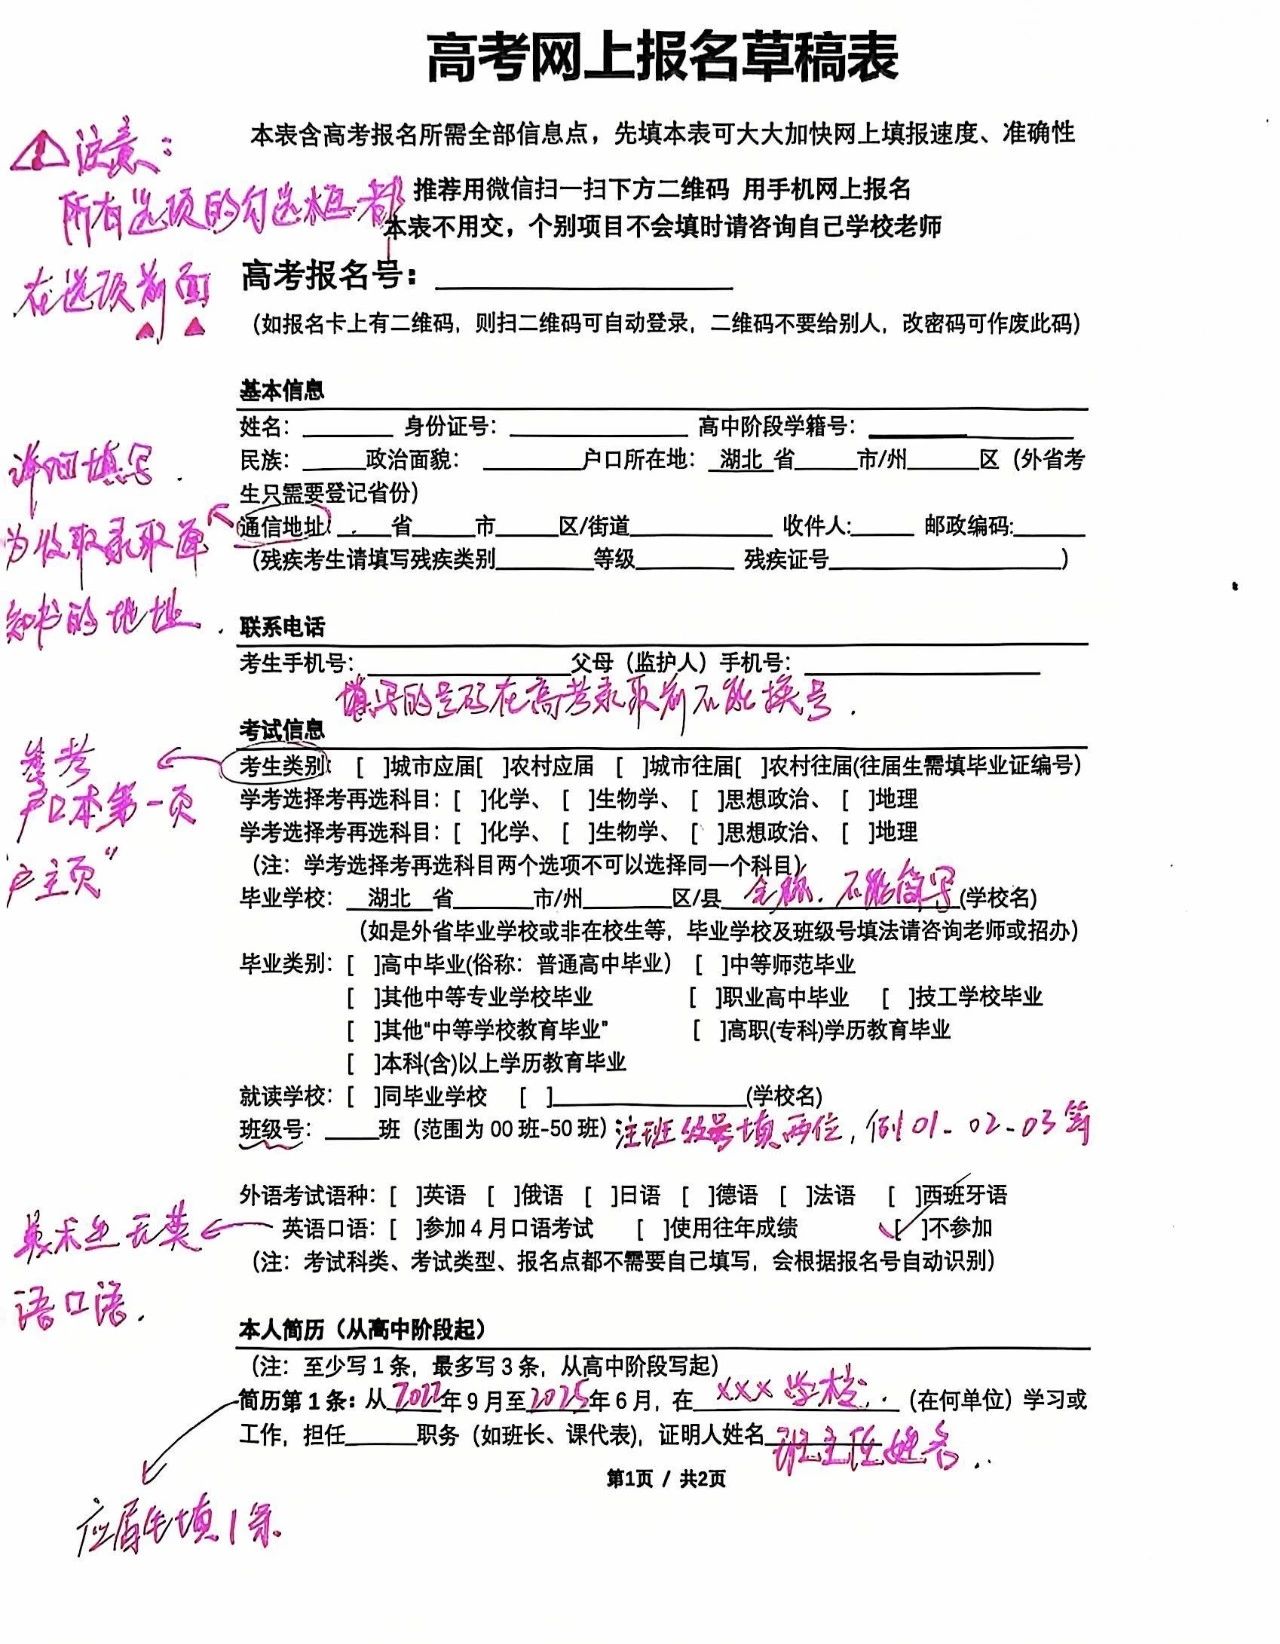 高考网上报名草稿表
本表含高考报名所需全部信息点，先填本表可大大加快网上填报速度、准确性
⚠注意：
所有选项的勾选框都
在选项前面
推荐用微信扫一扫下方二维码 用手机网上报名
本表不用交，个别项目不会填时请咨询自己学校老师
高考报名号：________
（如报名卡上有二维码，则扫二维码可自动登录，二维码不要给别人，改密码可作废此码）
基本信息
姓名：____ 身份证号：________ 高中阶段学籍号：________
民族：____政治面貌：____户口所在地：湖北 省____市/州____区（外省考
生只需要登记省份）
通信地址：____省____市____区/街道________ 收件人:____ 邮政编码:____
（残疾考生请填写残疾类别____等级____ 残疾证号________）
详细填写
为收取录取通
知书的地址.
联系电话
考生手机号：________父母（监护人）手机号：________
填写的号码在高考录取前不能换号.
考试信息
考生类别：[ ]城市应届[ ]农村应届 [ ]城市往届[ ]农村往届(往届生需填毕业证编号)
参考
户口本第一页
“户主页”
学考选择考再选科目：[ ]化学、 [ ]生物学、 [ ]思想政治、 [ ]地理
学考选择考再选科目：[ ]化学、 [ ]生物学、 [ ]思想政治、 [ ]地理
（注：学考选择考再选科目两个选项不可以选择同一个科目）
毕业学校： 湖北 省____市/州____区/县 全称.不能简写 (学校名)
（如是外省毕业学校或非在校生等，毕业学校及班级号填法请咨询老师或招办）
毕业类别：[ ]高中毕业(俗称：普通高中毕业） [ ]中等师范毕业
[ ]其他中等专业学校毕业 [ ]职业高中毕业 [ ]技工学校毕业
[ ]其他"中等学校教育毕业" [ ]高职(专科)学历教育毕业
[ ]本科(含)以上学历教育毕业
就读学校：[ ]同毕业学校 [ ]________(学校名)
班级号：____班（范围为 00 班-50 班）注班级号填两位，例01-02-03等
外语考试语种：[ ]英语 [ ]俄语 [ ]日语 [ ]德语 [ ]法语 [ ]西班牙语
英语口语：[ ]参加 4 月口语考试 [ ]使用往年成绩 [✓]不参加
美术生无英
语口语.
（注：考试科类、考试类型、报名点都不需要自己填写，会根据报名号自动识别）
本人简历（从高中阶段起）
（注：至少写 1 条，最多写 3 条，从高中阶段写起）
简历第 1 条：从 2022 年 9 月至 2025 年 6 月，在 xxx学校.（在何单位）学习或
工作，担任____职务（如班长、课代表)，证明人姓名 班主任姓名.
第1页 / 共2页
应届生填1条